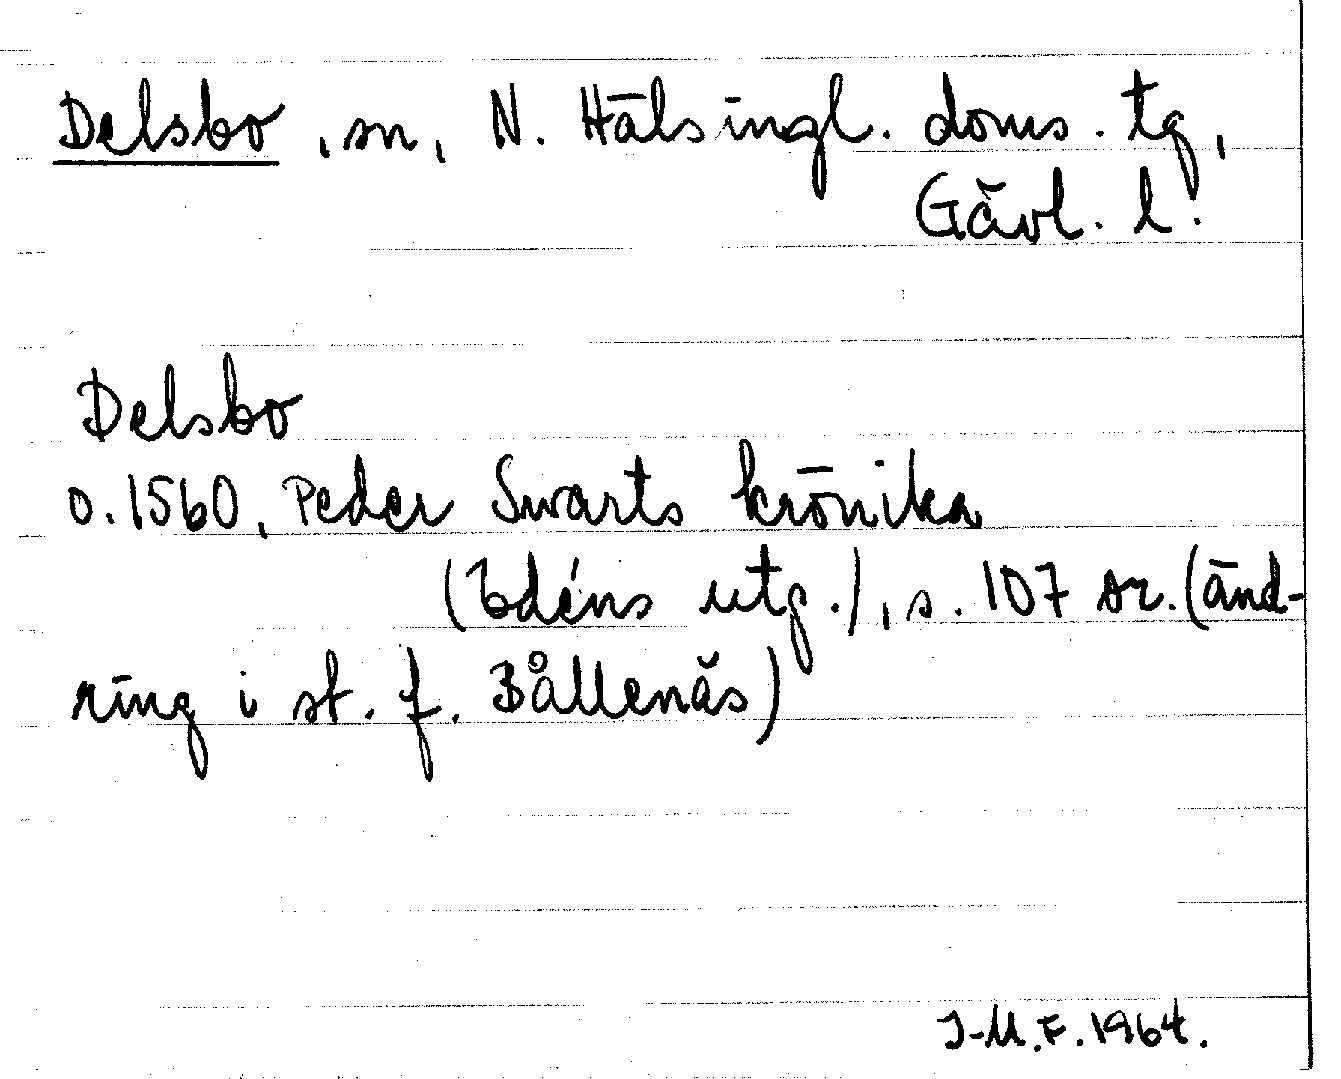 Delsbo, sn, N. Hälsingl. doms. tg,
Gävl. l.
Delsbo
o. 1560, Peder Swarts krönika
(Edéns utg.), s. 107 var. (änd-
ring i st. f. Bållenäs)
I-M.F. 1964.